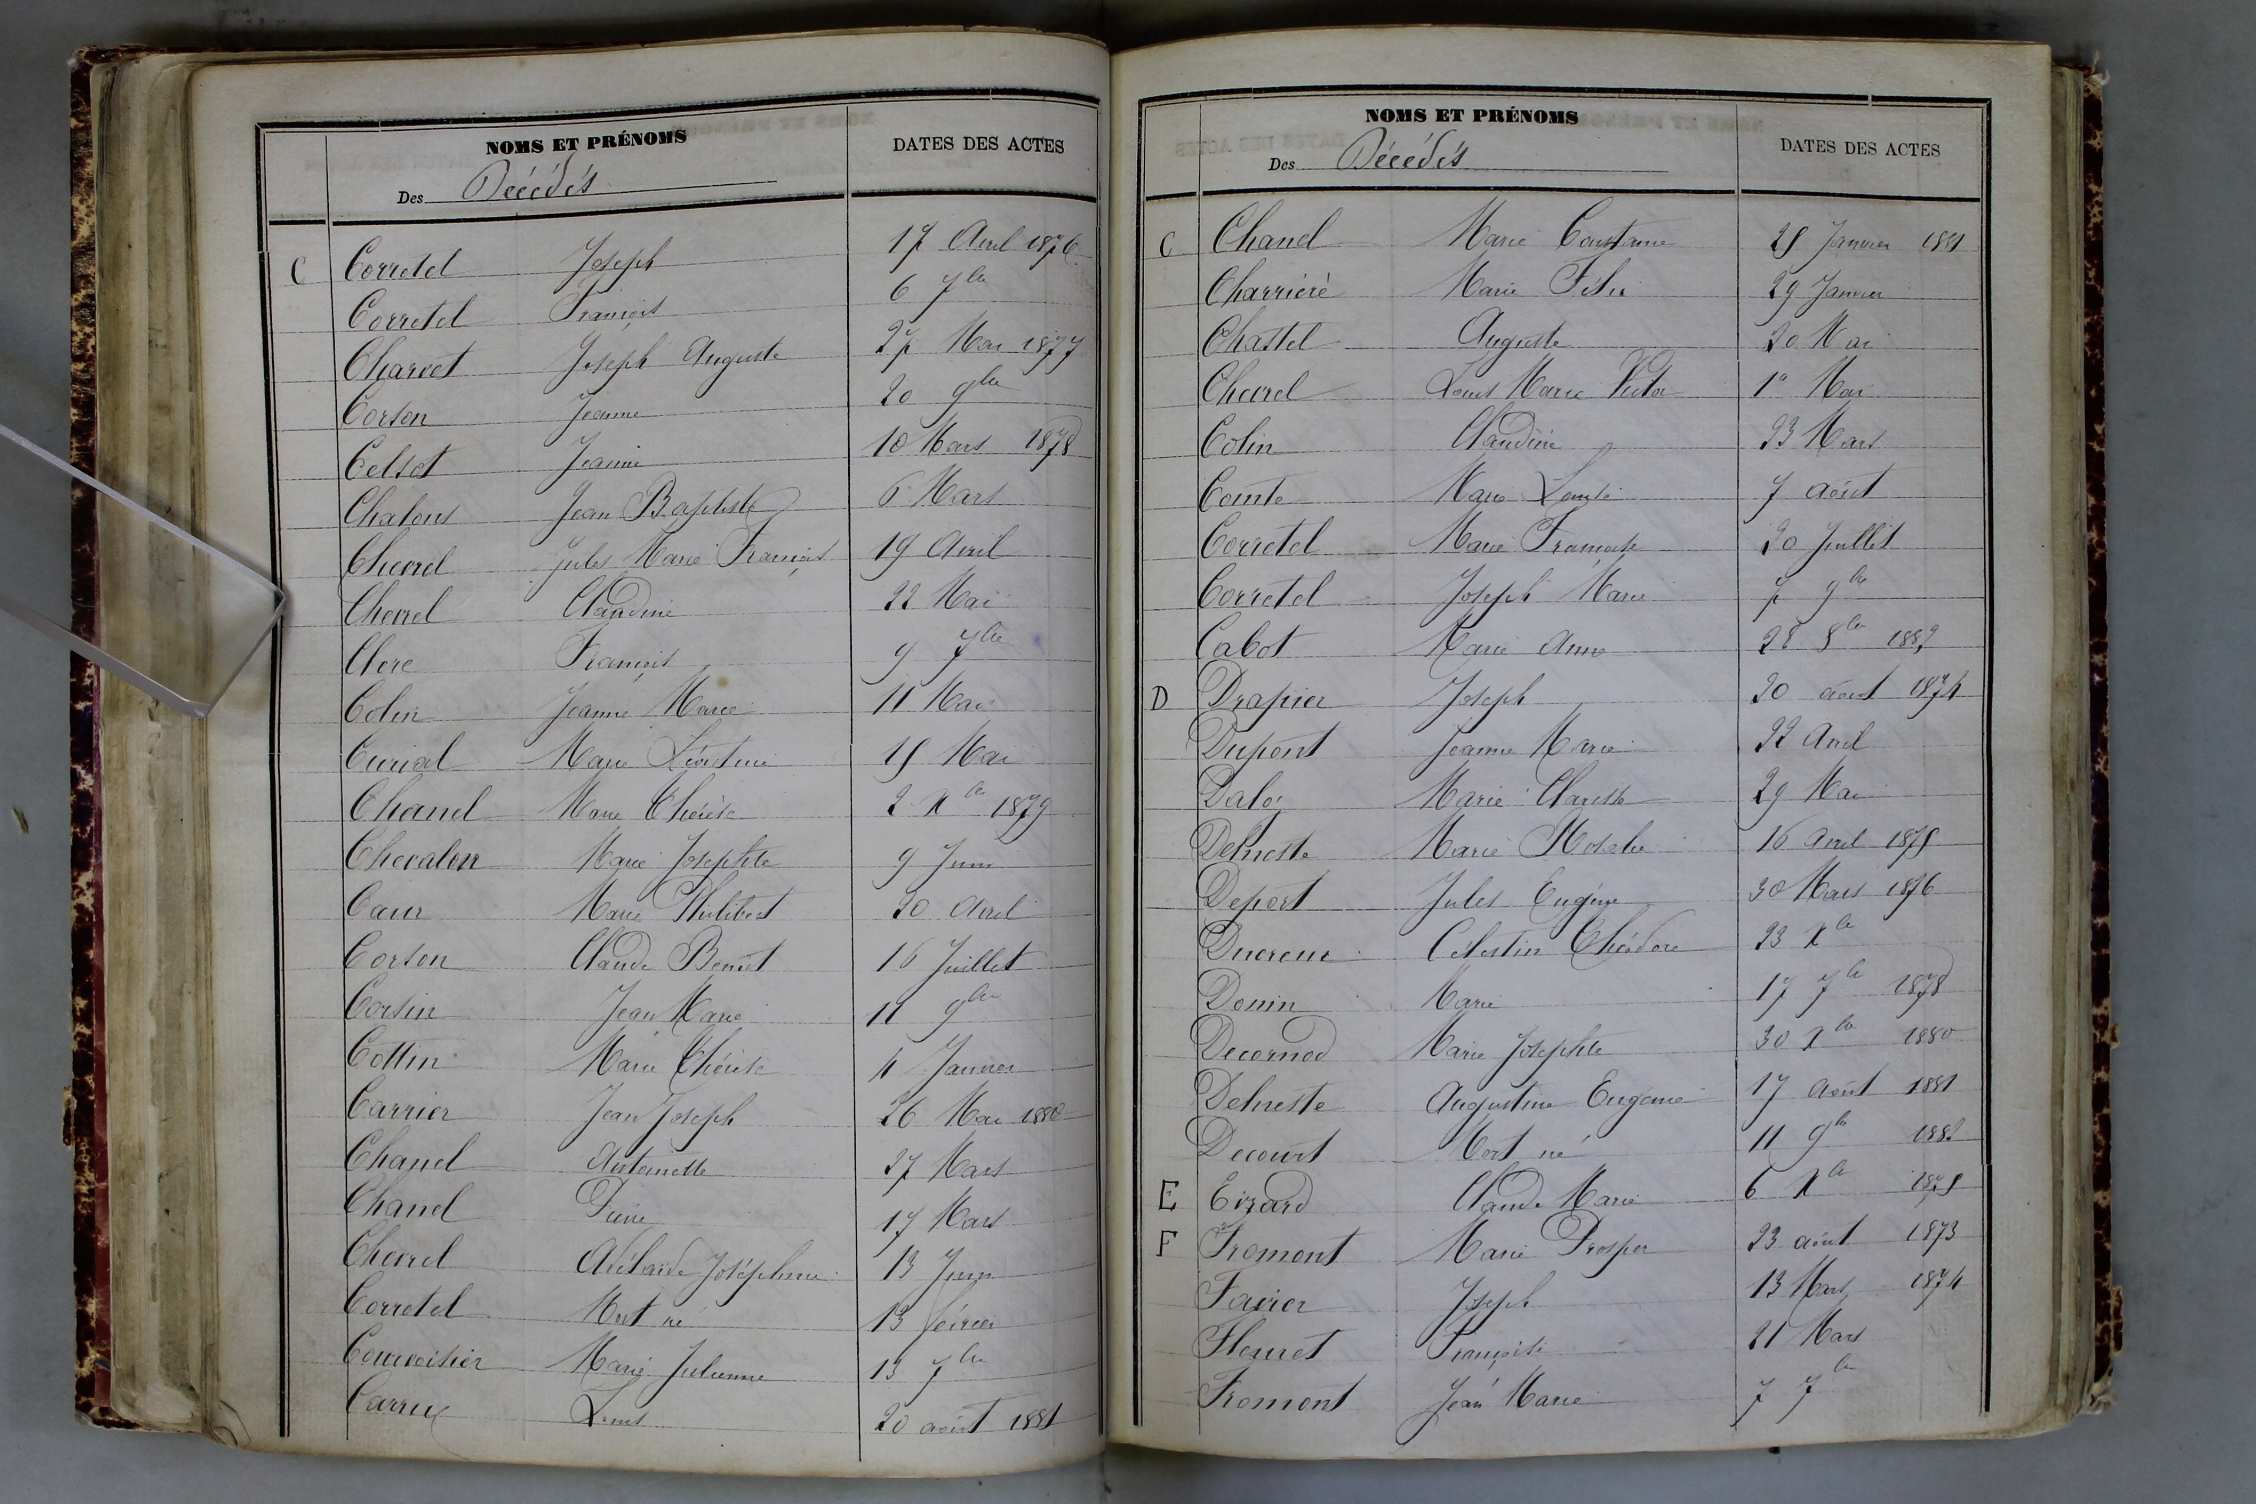 NOMS ET PRÉNOMS
DATES DES ACTES
Des Décédés
C Corretel Joseph 17 Avril 1876
Corretel François 6 7bre
Charvet Joseph Auguste 27 Mai 1877
Corson Jeanne 20 9bre
Celset Jeanne 10 Mars 1878
Chalons Jean Baptiste 6 Mars
Chevrel Jules Marie François 19 Avril
Chevrel Claudine 22 Mai
Clerc François 9 7bre
Colin Jeanne Marie 11 Mai
Curial Marie Léontine 15 Mai
Chanel Marie Thérèse 2 Xbre 1879
Chevalon Marie Josephte 9 Juin
Marie Philibert 20 Avril
Corson Claude Benoit 16 Juillet
Corsin Jean Marie 11 9bre
Cottin Marie Thérèse 4 Janvier
Carrier Jean Joseph 26 Mai 1880
Chanel Antoinette 27 Mars
Chanel Pierre 17 Mars
Chevrel Adélaïde Joséphine 13 Juin
Corretel Mort né 13 février
Courvoisier Marie Julienne 13 7bre
Louis 20 août 1881
NOMS ET PRÉNOMS
DATES DES ACTES
Des Décédés
C Chanel Marie Constance 25 Janvier 1881
Charrière Marie 29 Janvier
Chastel Auguste 20 Mai
Chevrel Louis Marie Victor 1er Mai
Colin Claudine 23 Mars
Comte Marie Louise 7 août
Corretel Marie Françoise 20 Juillet
Corretel Joseph Marie 7 9bre
Cabot Marie Anne 28 8bre 1882
D Drapier Joseph 20 août 1874
Dupont Jeanne Marie 22 Avril
Daloz Marie Clarisse 29 Mai
Delneste Marie Rosalie 16 avril 1875
Deport Jules Eugène 30 Mars 1876
Ducreux Célestin Théodore 23 Xbre
Donin Marie 17 7bre 1878
Decornod Marie Josephte 30 Xbre 1880
Delneste Augustine Eugénie 17 août 1881
Decourt Mort né 11 9bre 1882
E Evrard Claude Marie 6 Xbre 1875
F Fromont Marie Prosper 23 août 1873
Favier Joseph 13 Mars 1874
Flouret Françoise 21 Mars
Fromont Jean Marie 7 7bre